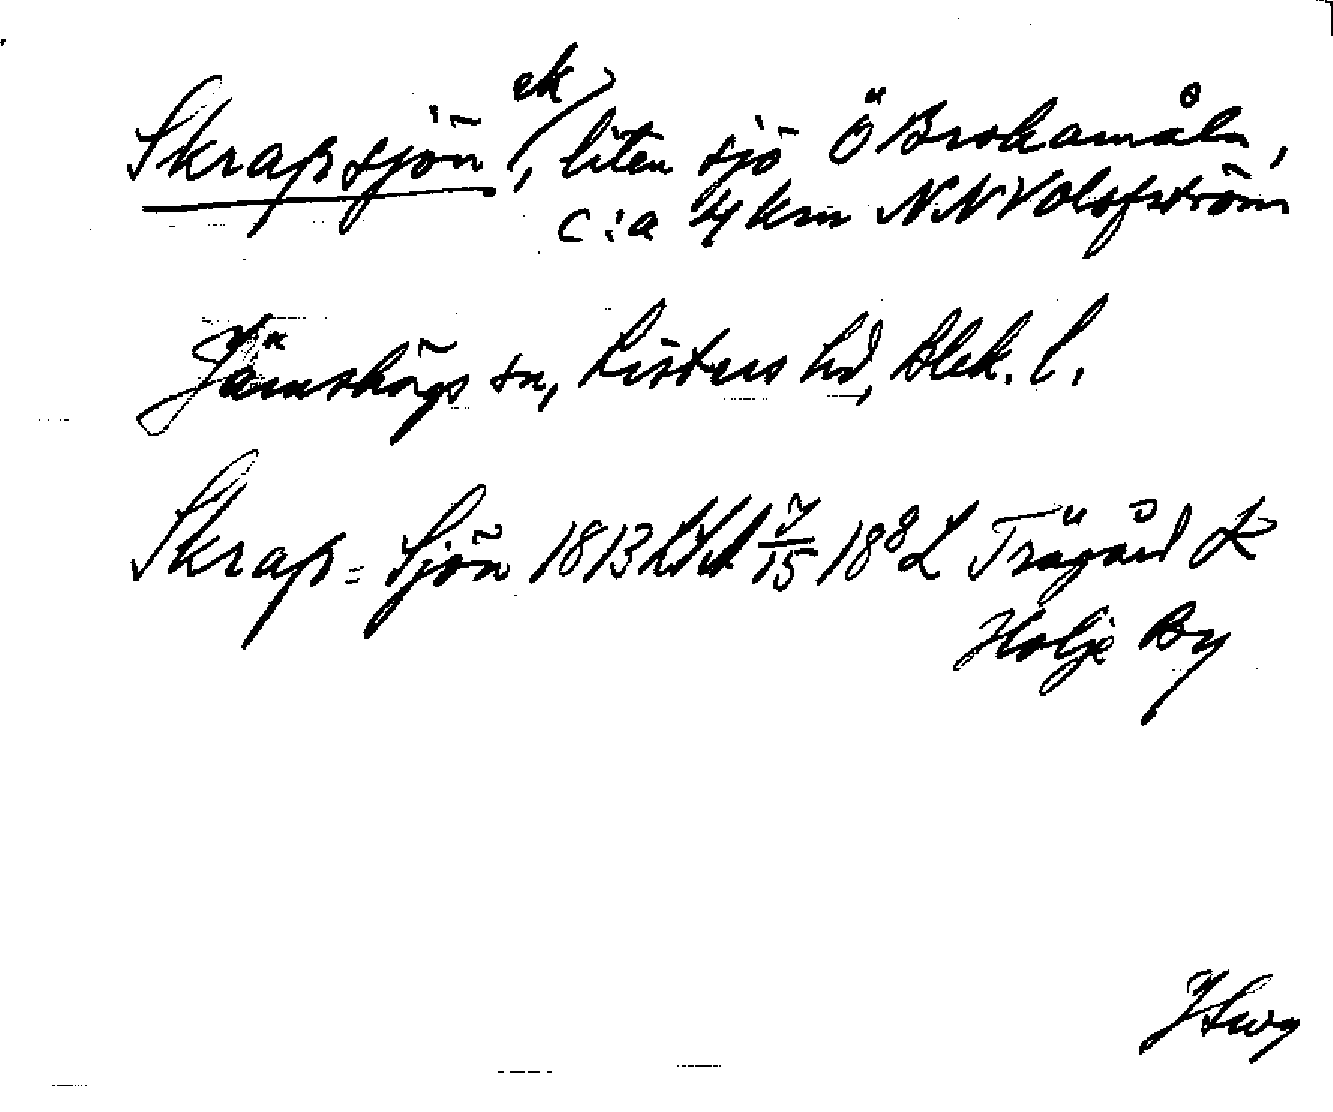 Skrapsjön ek, liten sjö Ö Brokamåla,
c:a 4 km NNV Olofström
Jämshögs sn, Listers hd, Blek. l.
Skrap-Sjön 1813 LSA 7/15 188 L Trägård L
Holje By